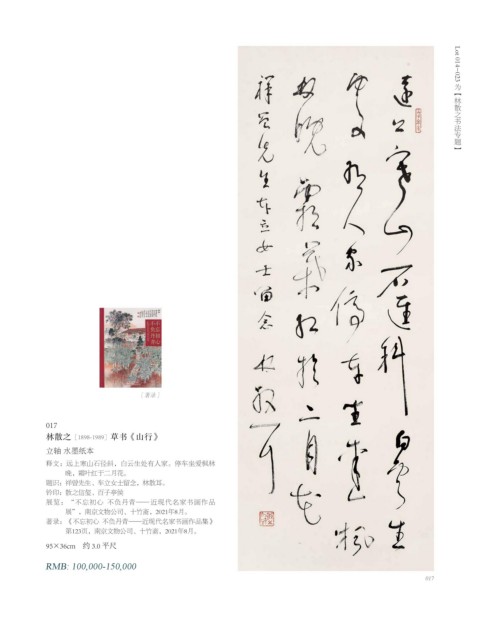 Lot 014—025 为【林散之书法专题】
遠上寒山石逕斜白雲生
處有人家停車坐愛楓
林晚霜葉紅於二月花
祥曾先生車立女士留念 林散耳
［著录］
017
林散之［1898-1989］草书《山行》
立轴 水墨纸本
释文：远上寒山石径斜，白云生处有人家。停车坐爱枫林
晚，霜叶红于二月花。
题识：祥曾先生、车立女士留念，林散耳。
钤印：散之信玺、百子亭侯
展览：“不忘初心 不负丹青——近现代名家书画作品
展”，南京文物公司、十竹斋，2021年6月。
著录：《不忘初心 不负丹青——近现代名家书画作品集》
第123页，南京文物公司、十竹斋，2021年6月。
95×36cm 约 3.0 平尺
RMB: 100,000-150,000
017